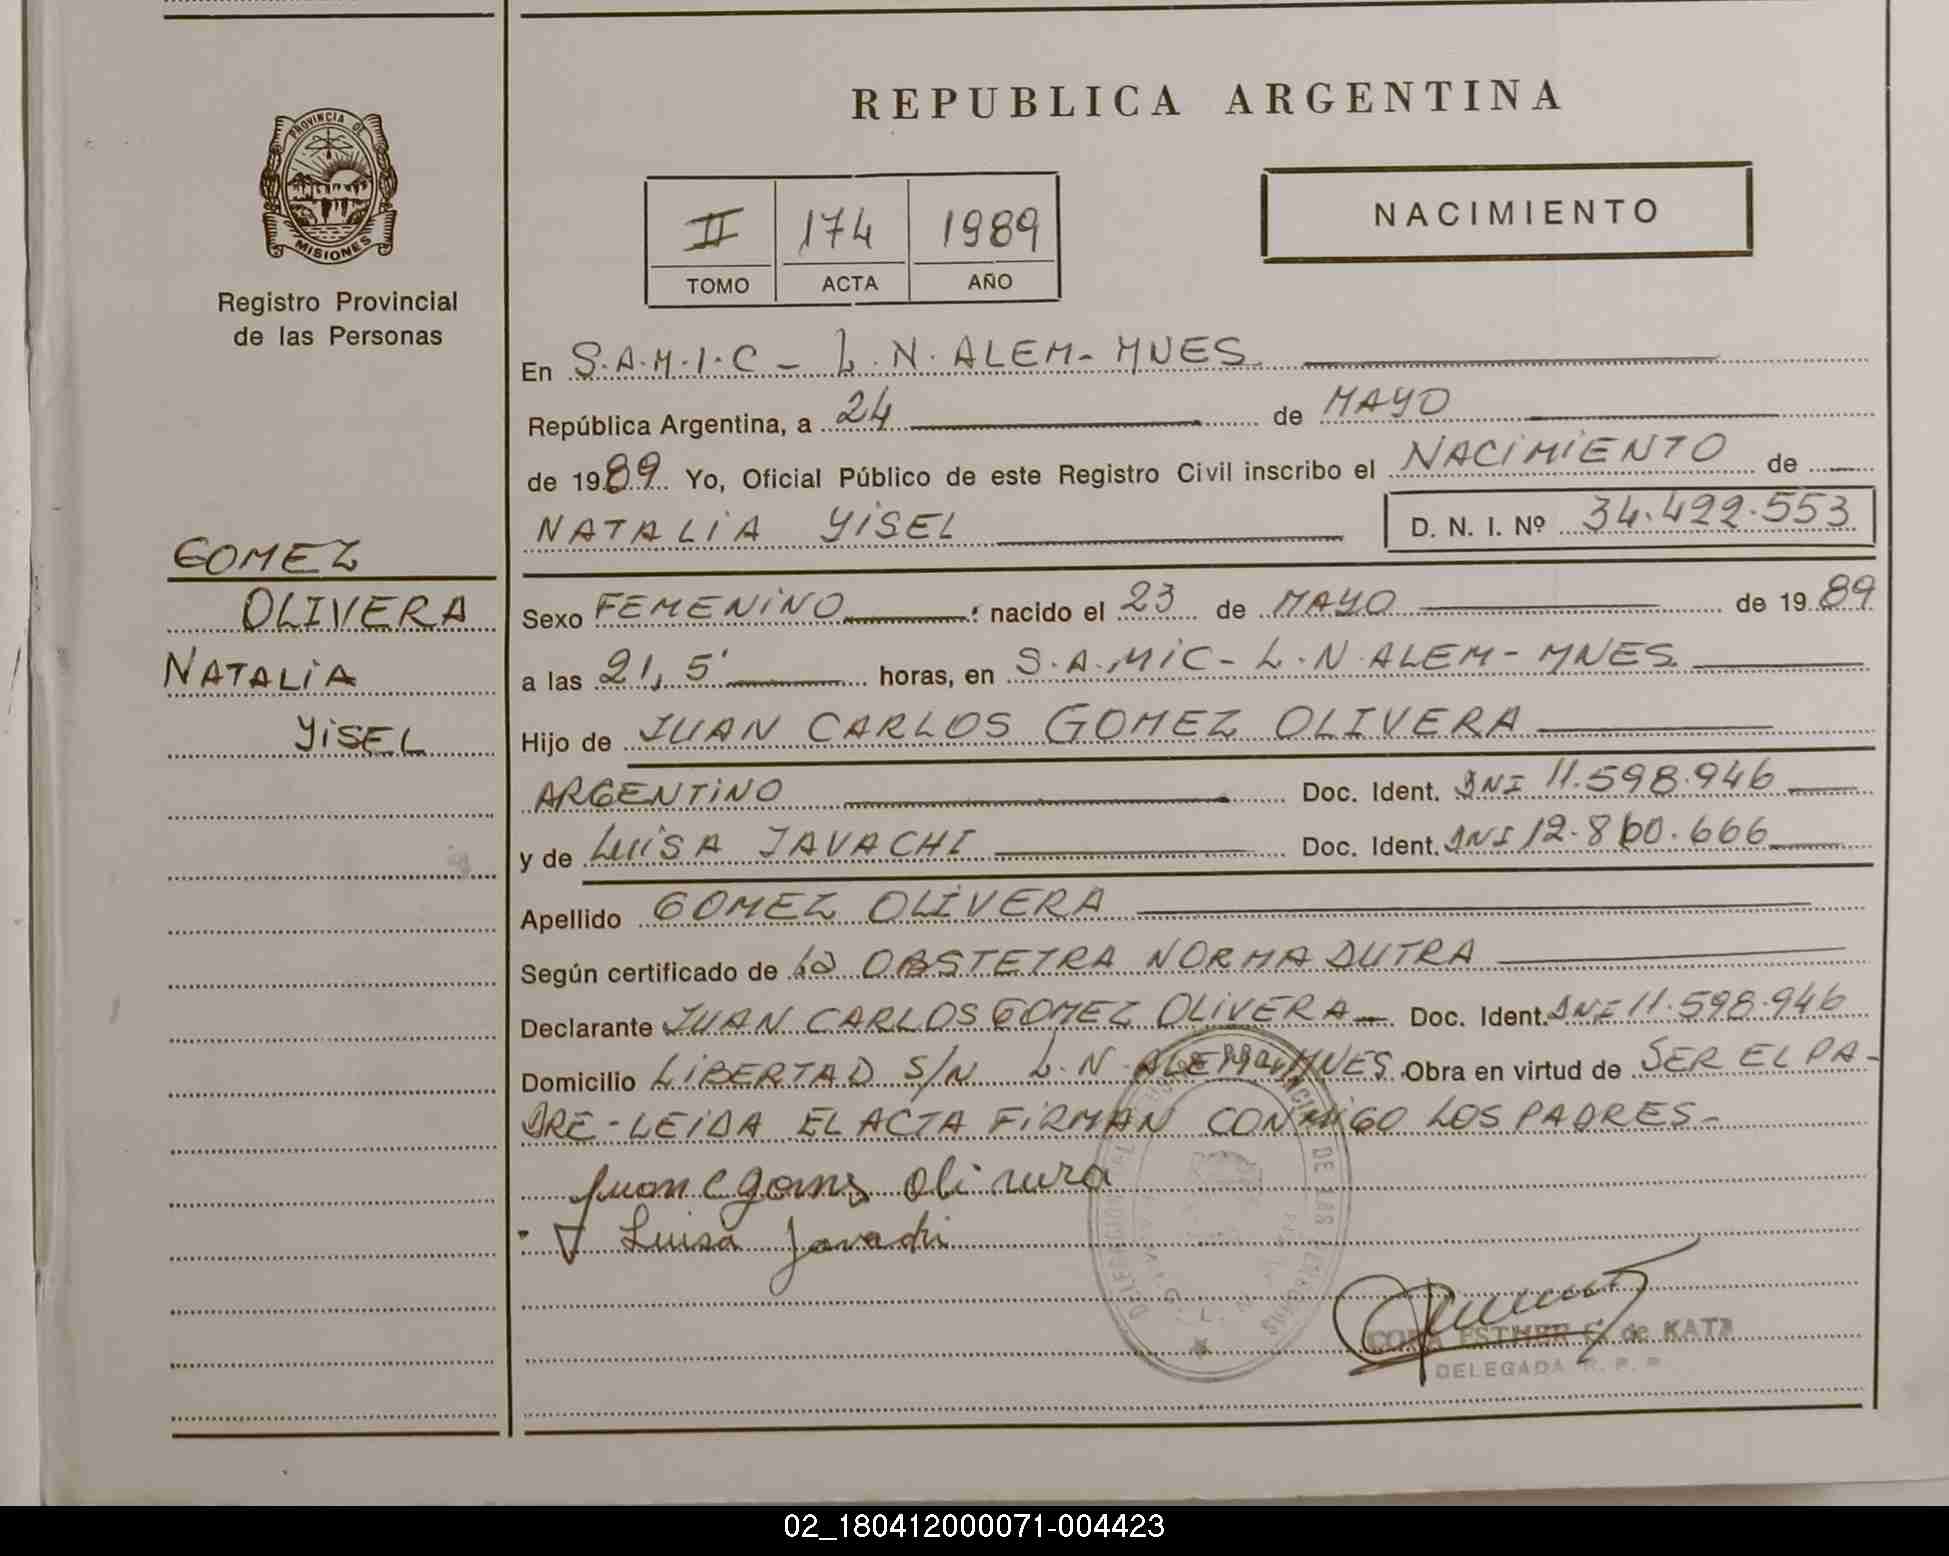 PROVINCIA DE
MISIONES
Registro Provincial
de las Personas
GOMEZ
OLIVERA
NATALIA
YISEL
REPUBLICA ARGENTINA
II 174 1989
TOMO ACTA AÑO
NACIMIENTO
En S.A.M.I.C - L.N. ALEM - MNES
República Argentina, a 24 de MAYO
de 1989 Yo, Oficial Público de este Registro Civil inscribo el NACIMIENTO de
NATALIA YISEL D. N. I. Nº 34.422.553
Sexo FEMENINO nacido el 23 de MAYO de 1989
a las 21,5' horas, en S.A.MIC - L.N. ALEM - MNES
Hijo de JUAN CARLOS GOMEZ OLIVERA
ARGENTINO Doc. Ident. DNI 11.598.946
y de LUISA JAVACHI Doc. Ident. DNI
Apellido GOMEZ OLIVERA
Según certificado de la OBSTETRA NORMA DUTRA
Declarante JUAN CARLOS GOMEZ OLIVERA Doc. Ident. DNI 11.598.946
Domicilio LIBERTAD S/N L.N. ALEM MNES Obra en virtud de SER EL PA-
DRE - LEIDA EL ACTA FIRMAN CONMIGO LOS PADRES -
Juan C Gomez Olivera
Luisa Javachi
DE LAS PERSONAS
CORA ESTHER C. de KATZ
DELEGADA R. P. P.
02_180412000071-004423